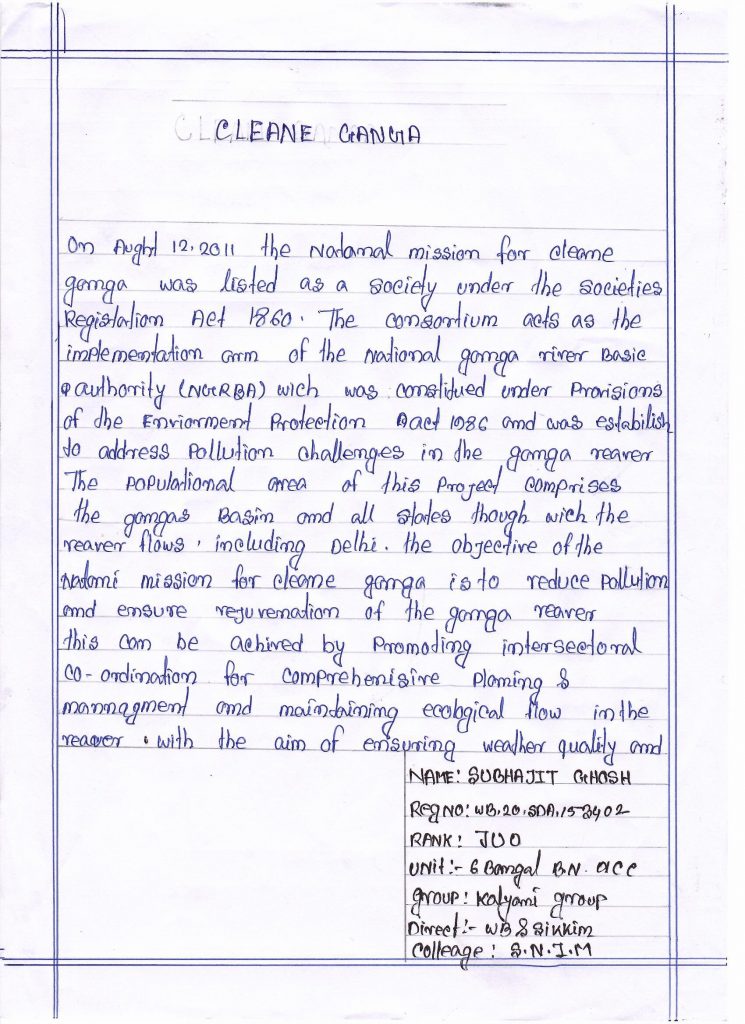 CLEANE GANGA
On Aught 12.2011 the Natamal mission for cleame
gamga was listed as a society under the societies
Registation Act 1860. The consortium acts as the
implementation arm of the National gamga river Basic
authority (NGRBA) wich was constidued under Provisions
of the Enviorment Protection Act 1986 and was estabilish
to address Pollution challenges in the gamga reaver
The POPulational area of this Project comprises
the gamgas Basin amd all states though wich the
reaver flows, including Delhi. the objective of the
Natami mission for cleame gamga is to reduce Pollution
and ensure rejuvemation of the gamga reaver
this can be achived by Promoting intersectoral
co-ordination for comprehenisive Plaming &
mannagment amd maintaining ecological flow in the
reaver. with the aim of ensuring weather quality and
NAME: SUBHAJIT GHOSH
Reg NO: WB.20.SDA.153402
RANK: JUO
UNit:- 6 Bamgal BN. NCC
group: Kalyami group
Direct:- WB & Sikkim
Colleage: S.N.I.M